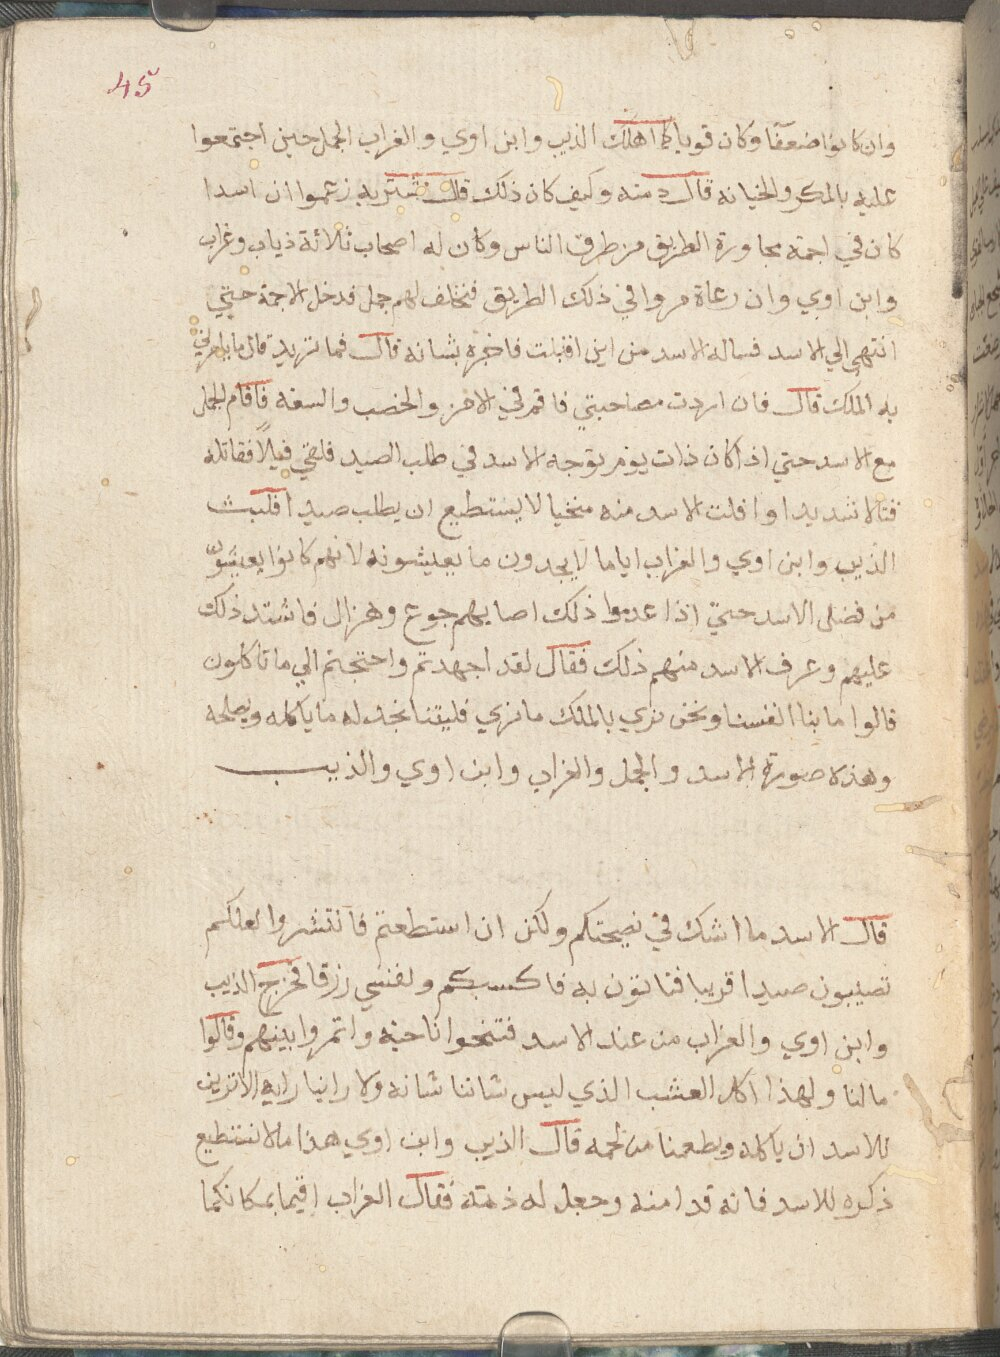 45
وان كانوا ضعفا وكان قويا كما اهلك الذيب وابن اوي والغراب الجمل حين اجتمعوا
عليه بالمكر والخيانه قال دمنه وكيف كان ذلك قال شتربه زعموا ان اسدا
كان في اجمة مجاورة الطريق من طرق الناس وكان له اصحاب ثلاثة ذياب وغراب
وابن اوي وان رعاة مروا في ذلك الطريق فتخلف لهم جمل فدخل الاجمة حتي
انتهي الي الاسد فساله الاسد من اين اقبلت فاخبره بشانه قال فما تريد قال ما يامرني
به الملك قال فان اردت مصاحبتي فاقم في الامن والخصب والسعه فاقام الجمل
مع الاسد حتي اذا كان ذات يوم توجه الاسد في طلب الصيد فلقي فيلا فقاتله
قتالا شديدا وافلت الاسد منه مثخنا لا يستطيع ان يطلب صيدا فلبث
الذيب وابن اوي والغراب اياما لا يجدون ما يعيشونه لانهم كانوا يعيشون
من فضل الاسد حتي اذا عدموا ذلك اصابهم جوع وهزال فاشتد ذلك
عليهم وعرف الاسد منهم ذلك فقال لقد اجهدتم واحتجتم الي ما تاكلون
قالوا ما بنا انفسنا ونحن نري بالملك ما نري فليتنا نجد له ما ياكله ويصلحه
وهذه صورة الاسد والجمل والغراب وابن اوي والذيب
قال الاسد ما اشك في نصيحتكم ولكن ان استطعتم فانتشروا لعلكم
تصيبون صيدا قريبا فتاتون به فاكسبكم ونفسي رزقا فخرج الذيب
وابن اوي والغراب من عند الاسد فتنحوا ناحية واتمروا بينهم وقالوا
ما لنا ولهذا اكل العشب الذي ليس شاننا شانه ولا راينا رايه الا نزين
للاسد ان ياكله ويطعمنا من لحمه قال الذيب وابن اوي هذا ما لا نستطيع
ذكره للاسد فانه قد امنه وجعل له ذمته فقال الغراب اقيما بمكانكما